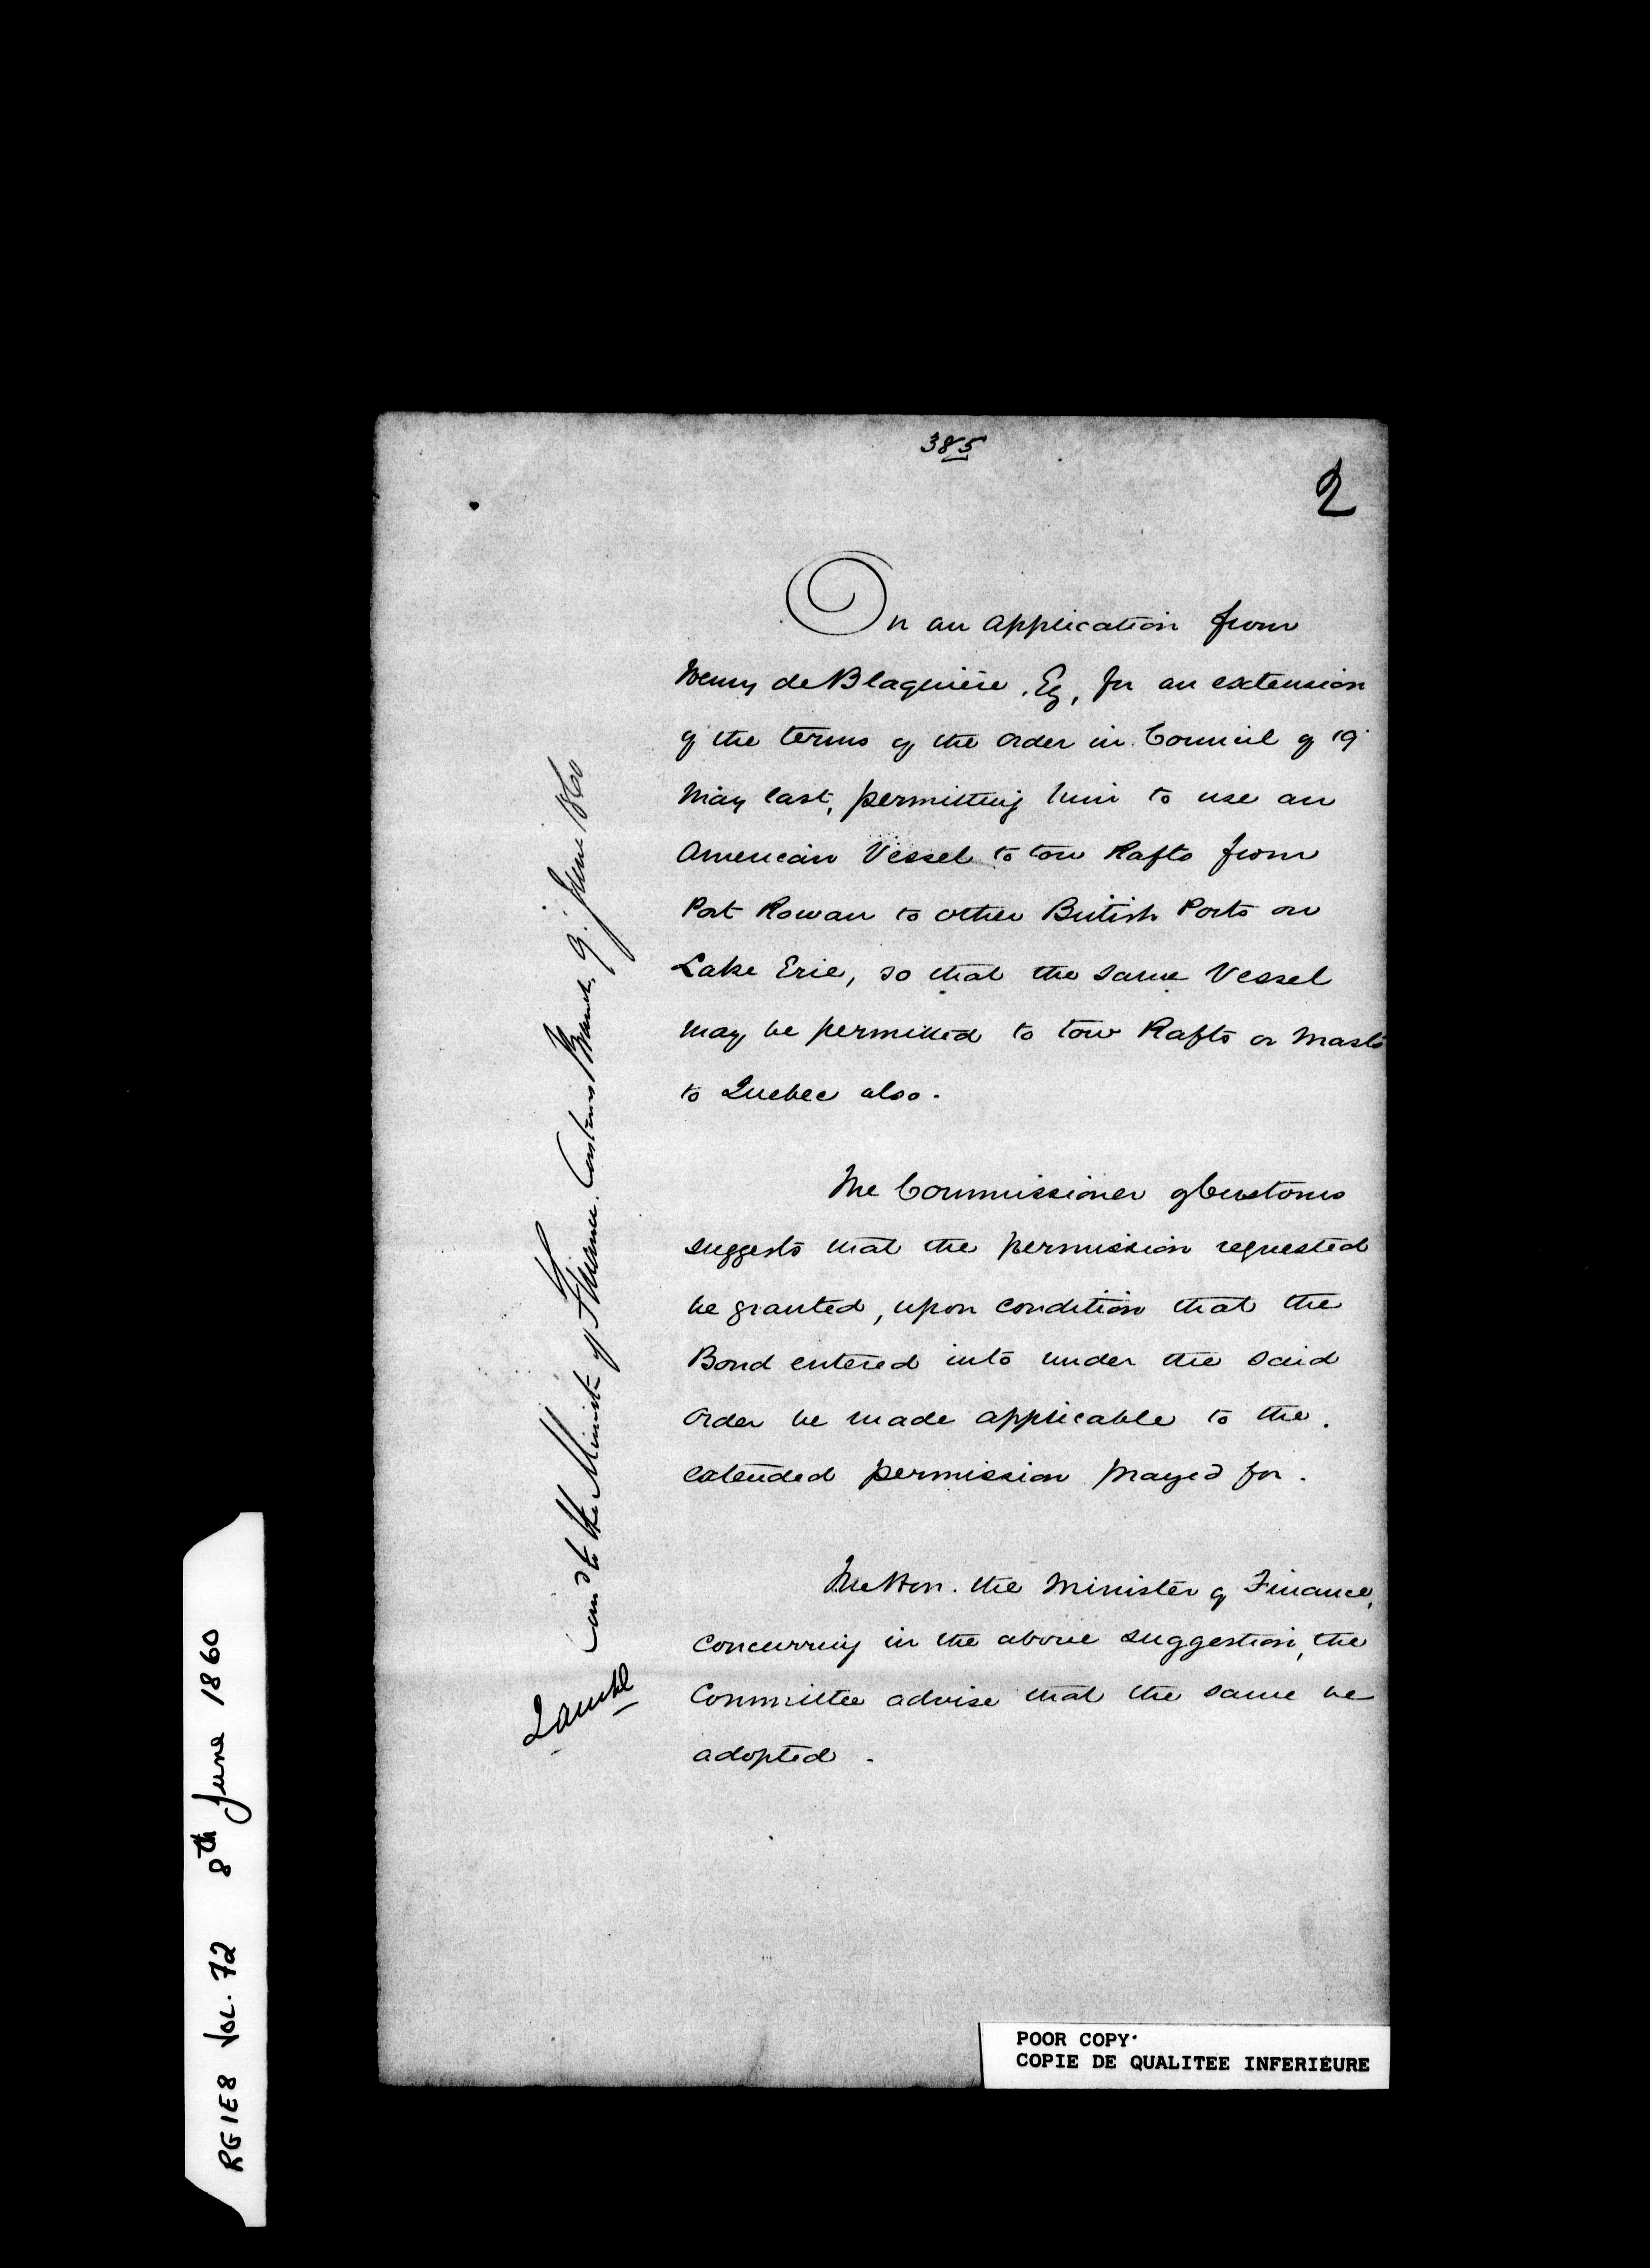 385
2
On an application from
Henry de Blaquière, Esq, for an extension
of the terms of the Order in Council of 19
May last, permitting him to use an
American Vessel to tow Rafts from
Port Rowan to other British Ports on
Lake Erie, so that the same Vessel
may be permitted to tow Rafts or Masts
to Quebec also.
The Commissioner of Customs
suggests that the permission requested
be granted, upon condition that the
Bond entered into under the said
Order be made applicable to the
extended permission prayed for.
The Hon. the Minister of Finance,
concurring in the above suggestion, the
Committee advise that the same be
adopted.
to the Minister of Finance. Customs Branch, 9. June 1860
RG1E8 VOL. 72 8th June 1860
POOR COPY
COPIE DE QUALITEE INFERIEURE